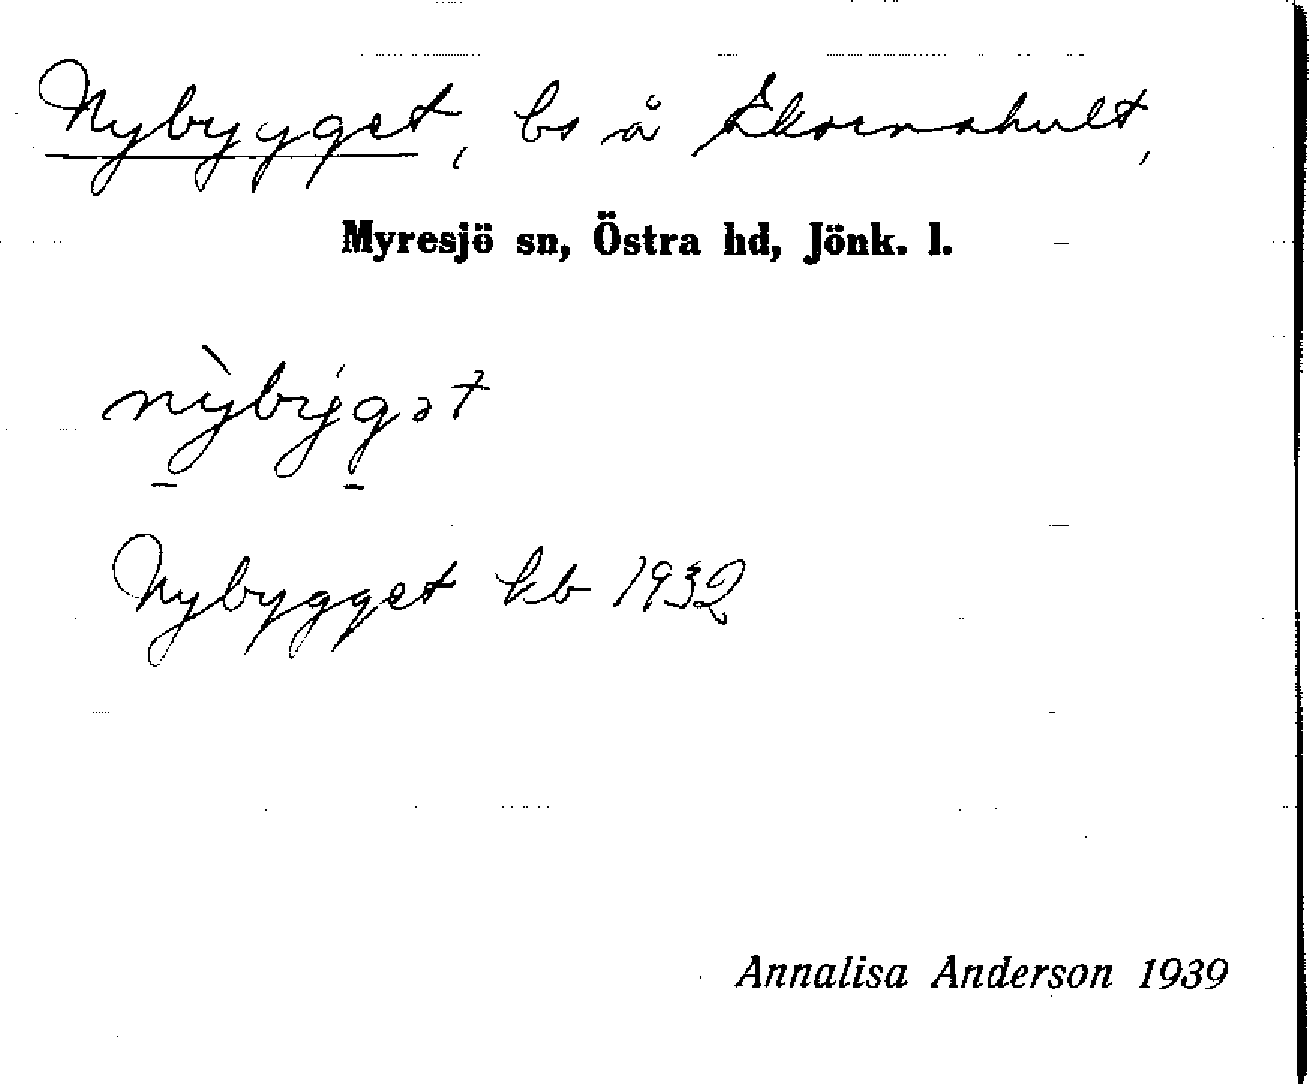 Nybygget, bs å Ekornahult,
Myresjö sn, Östra hd, Jönk. l.
nỳbýgət
Nybygget kb 1932
Annalisa Anderson 1939